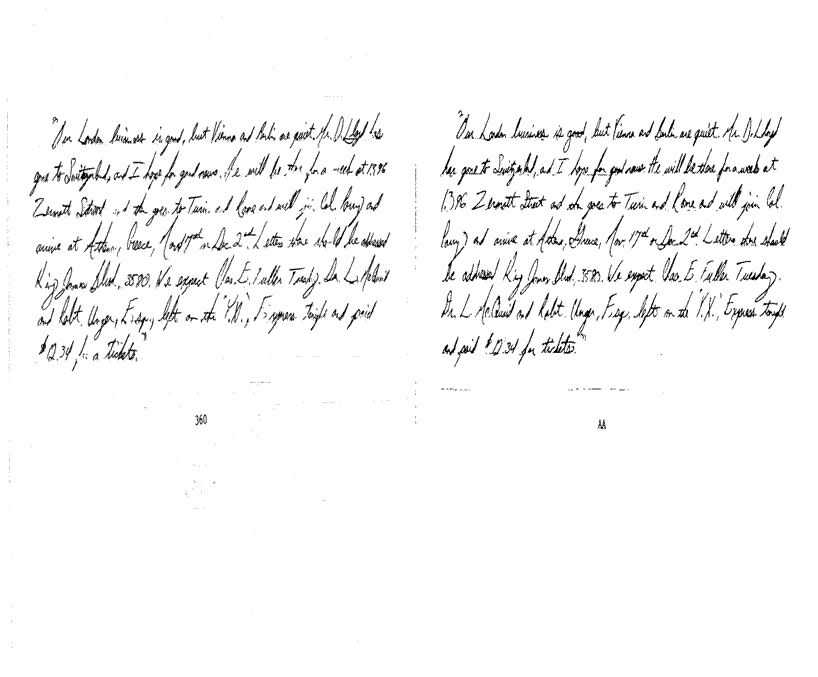 "Our London business is good, but Vienna and Berlin are quiet. Mr. D. Lloyd has
gone to Switzerland, and I hope for good news. He will be there for a week at 1396
Zermatt Street and then goes to Turin and Rome and will join Col. Parry and
arrive at Athens, Greece, Nov. 27th or Dec. 2nd. Letters there should be addressed
King James Blvd., 3580. We expect Chas. E. Fuller Tuesday. Dr. L. McQuaid
and Robt. Unger, Esq., left on the "Y.X.", Express tonight and paid
$12.34 for a tickets."
360
"Our London business is good, but Vienna and Berlin are quiet. Mr. D. Lloyd
has gone to Switzerland, and I hope for good news. He will be there for a week at
1396 Zermatt Street and then goes to Turin and Rome and will join Col.
Parry and arrive at Athens, Greece, Nov. 17th or Dec. 2nd. Letters there should
be addressed King James Blvd. 3580. We expect Chas. E. Fuller Tuesday.
Dr. L. McQuaid and Robt. Unger, Esq., left on the "Y.X.", Express tonight
and paid $12.34 for tickets."
AA